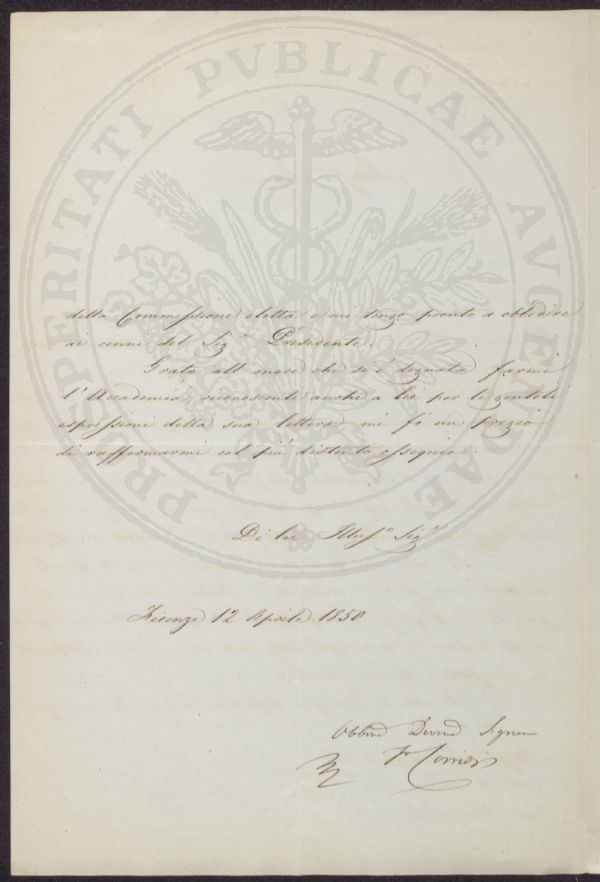 PROSPERITATI PVBLICAE AVGENDAE
della Commissione eletta e mi tengo pronto a obbedire
ai cenni del Sig.r Presidente.
Grato all'onore che si è degnata farmi
l'Accademia, riconoscente anche a lei per le gentili
espressioni della sua lettera mi fo un pregio
di raffermarmi col più distinto ossequio.
Di lei Illus.o Sig.r
Firenze 12 Aprile 1850
Obbmo Devmo